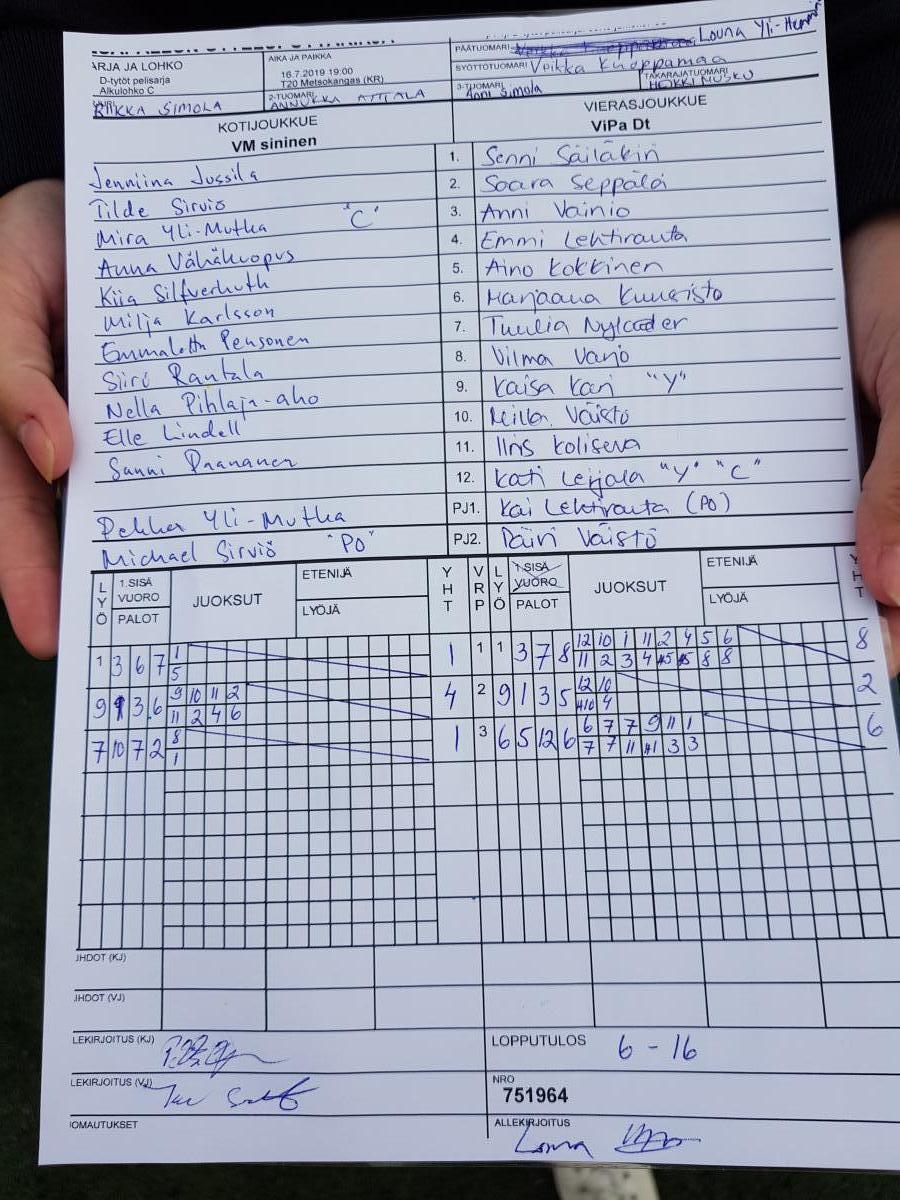 ARJA JA LOHKO
D-tytöt pelisarja
Alkulohko C
AIKA JA PAIKKA
16.7.2019 19:00
T20 Metsokangas (KR)
PÄÄTUOMARI Louna Yli-Hemm
SYÖTTÖTUOMARI Veikka Kuoppamaa
RIIKKA SIMOLA
2-TUOMARI ANNUKKA AITTALA
3-TUOMARI Anni Simola
TAKARAJATUOMARI HEIKKI NUSKU
KOTIJOUKKUE
VM sininen
VIERASJOUKKUE
ViPa Dt
Jenniina Jussila 1. Senni Säiläkivi
Tilde Sirviö 2. Saara Seppälä
Mira Yli-Mutka "C" 3. Anni Vainio
Anna Vähäkuopus 4. Emmi Lehtirauta
Kiia Silfverhuth 5. Aino Kokkinen
Milja Karlsson 6. Marjaana Kuusisto
Emmalotta Pensonen 7. Tuulia Nylander
Siiri Rantala 8. Vilma Varjo
Nella Pihlaja-aho 9. Kaisa Kari "Y"
Elle Lindell 10. Milla Väistö
Sanni Paananen 11. Iiris Koliseva
12. Kati Leijala "Y" "C"
Pekka Yli-Mutka PJ1. Kai Lehtirauta (PO)
Michael Sirviö "PO" PJ2. Päivi Väistö
LYÖ 1.SISÄ VUORO PALOT JUOKSUT ETENIJÄ LYÖJÄ YHT VRP LYÖ 1.SISÄ VUORO PALOT JUOKSUT ETENIJÄ LYÖJÄ YHT
1 3 6 7 1 1 1 1 3 7 8 12 10 1 11 2 4 5 6 8
5 11 2 3 4 5 5 8 8
9 9 3 6 9 10 11 2 4 2 9 1 3 5 12 10 2
11 2 4 6 10 4
7 10 7 2 8 1 3 6 5 12 6 6 7 7 9 11 1 6
1 7 7 11 1 3 3
JHDOT (KJ)
JHDOT (VJ)
LEKIRJOITUS (KJ)
LOPPUTULOS 6 - 16
LEKIRJOITUS (VJ)
NRO
751964
OMAUTUKSET
ALLEKIRJOITUS Louna